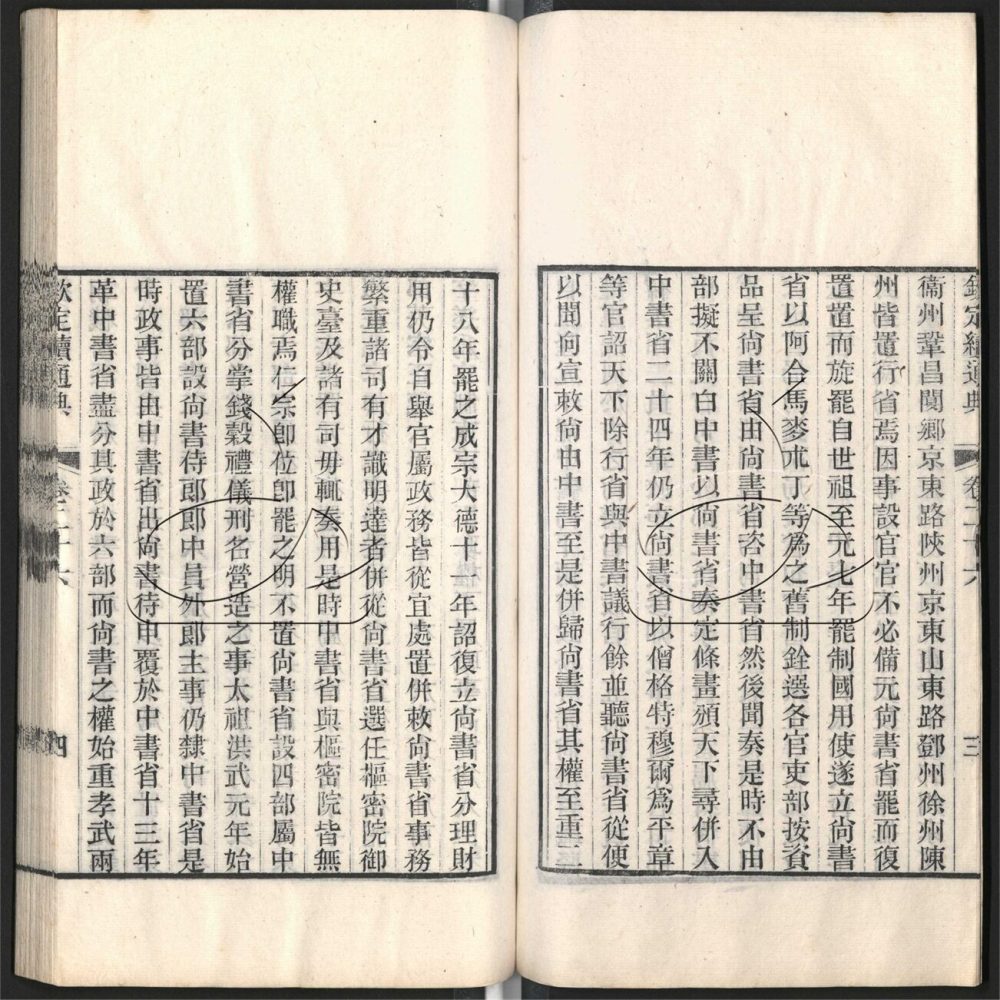 欽定續通典 卷二十六 三
衞州鞏昌閿鄉京東路陝州京東山東路鄧州徐州陳
州皆置行省焉因事設官官不必備元尚書省罷而復
置置而旋罷自世祖至元七年罷制國用使遂立尚書
省以阿合馬麥朮丁等爲之舊制銓選各官吏部按資
品呈尚書省由尚書省咨中書省然後聞奏是時不由
部擬不關白中書以尚書省奏定條畫頒天下尋併入
中書省二十四年仍立尚書省以僧格特穆爾爲平章
等官詔天下除行省與中書議行餘並聽尚書省從便
以聞向宣敕尚由中書至是併歸尚書省其權至重二
十八年罷之成宗大德十一年詔復立尚書省分理財
用仍令自舉官屬政務皆從宜處置併敕尚書省事務
繁重諸司有才識明達者併從尚書省選任樞密院御
史臺及諸有司毋輒奏用是時中書省與樞密院皆無
權職焉仁宗卽位卽罷之明不置尚書省設四部屬中
書省分掌錢穀禮儀刑名營造之事太祖洪武元年始
置六部設尚書侍郎郎中員外郎主事仍隸中書省是
時政事皆由中書省出尚書待申覆於中書省十三年
革中書省盡分其政於六部而尚書之權始重孝武兩
欽定續通典 卷二十六 四